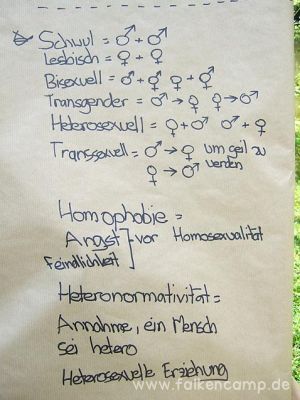 Schwul = ♂ + ♂
Lesbisch = ♀ + ♀
Bisexuell = ♂ + ⚥ ♀ + ⚥
Transgender = ♂ → ♀ ♀ → ♂
Heterosexuell = ♀ + ♂ ♂ + ♀
Transsexuell = ♂ → ♀ um geil zu
♀ → ♂ werden
Homophobie =
Angst vor Homosexualität
Feindlichkeit
Heteronormativität =
Annahme, ein Mensch
sei hetero
Heterosexuelle Erziehung
www.falkencamp.de